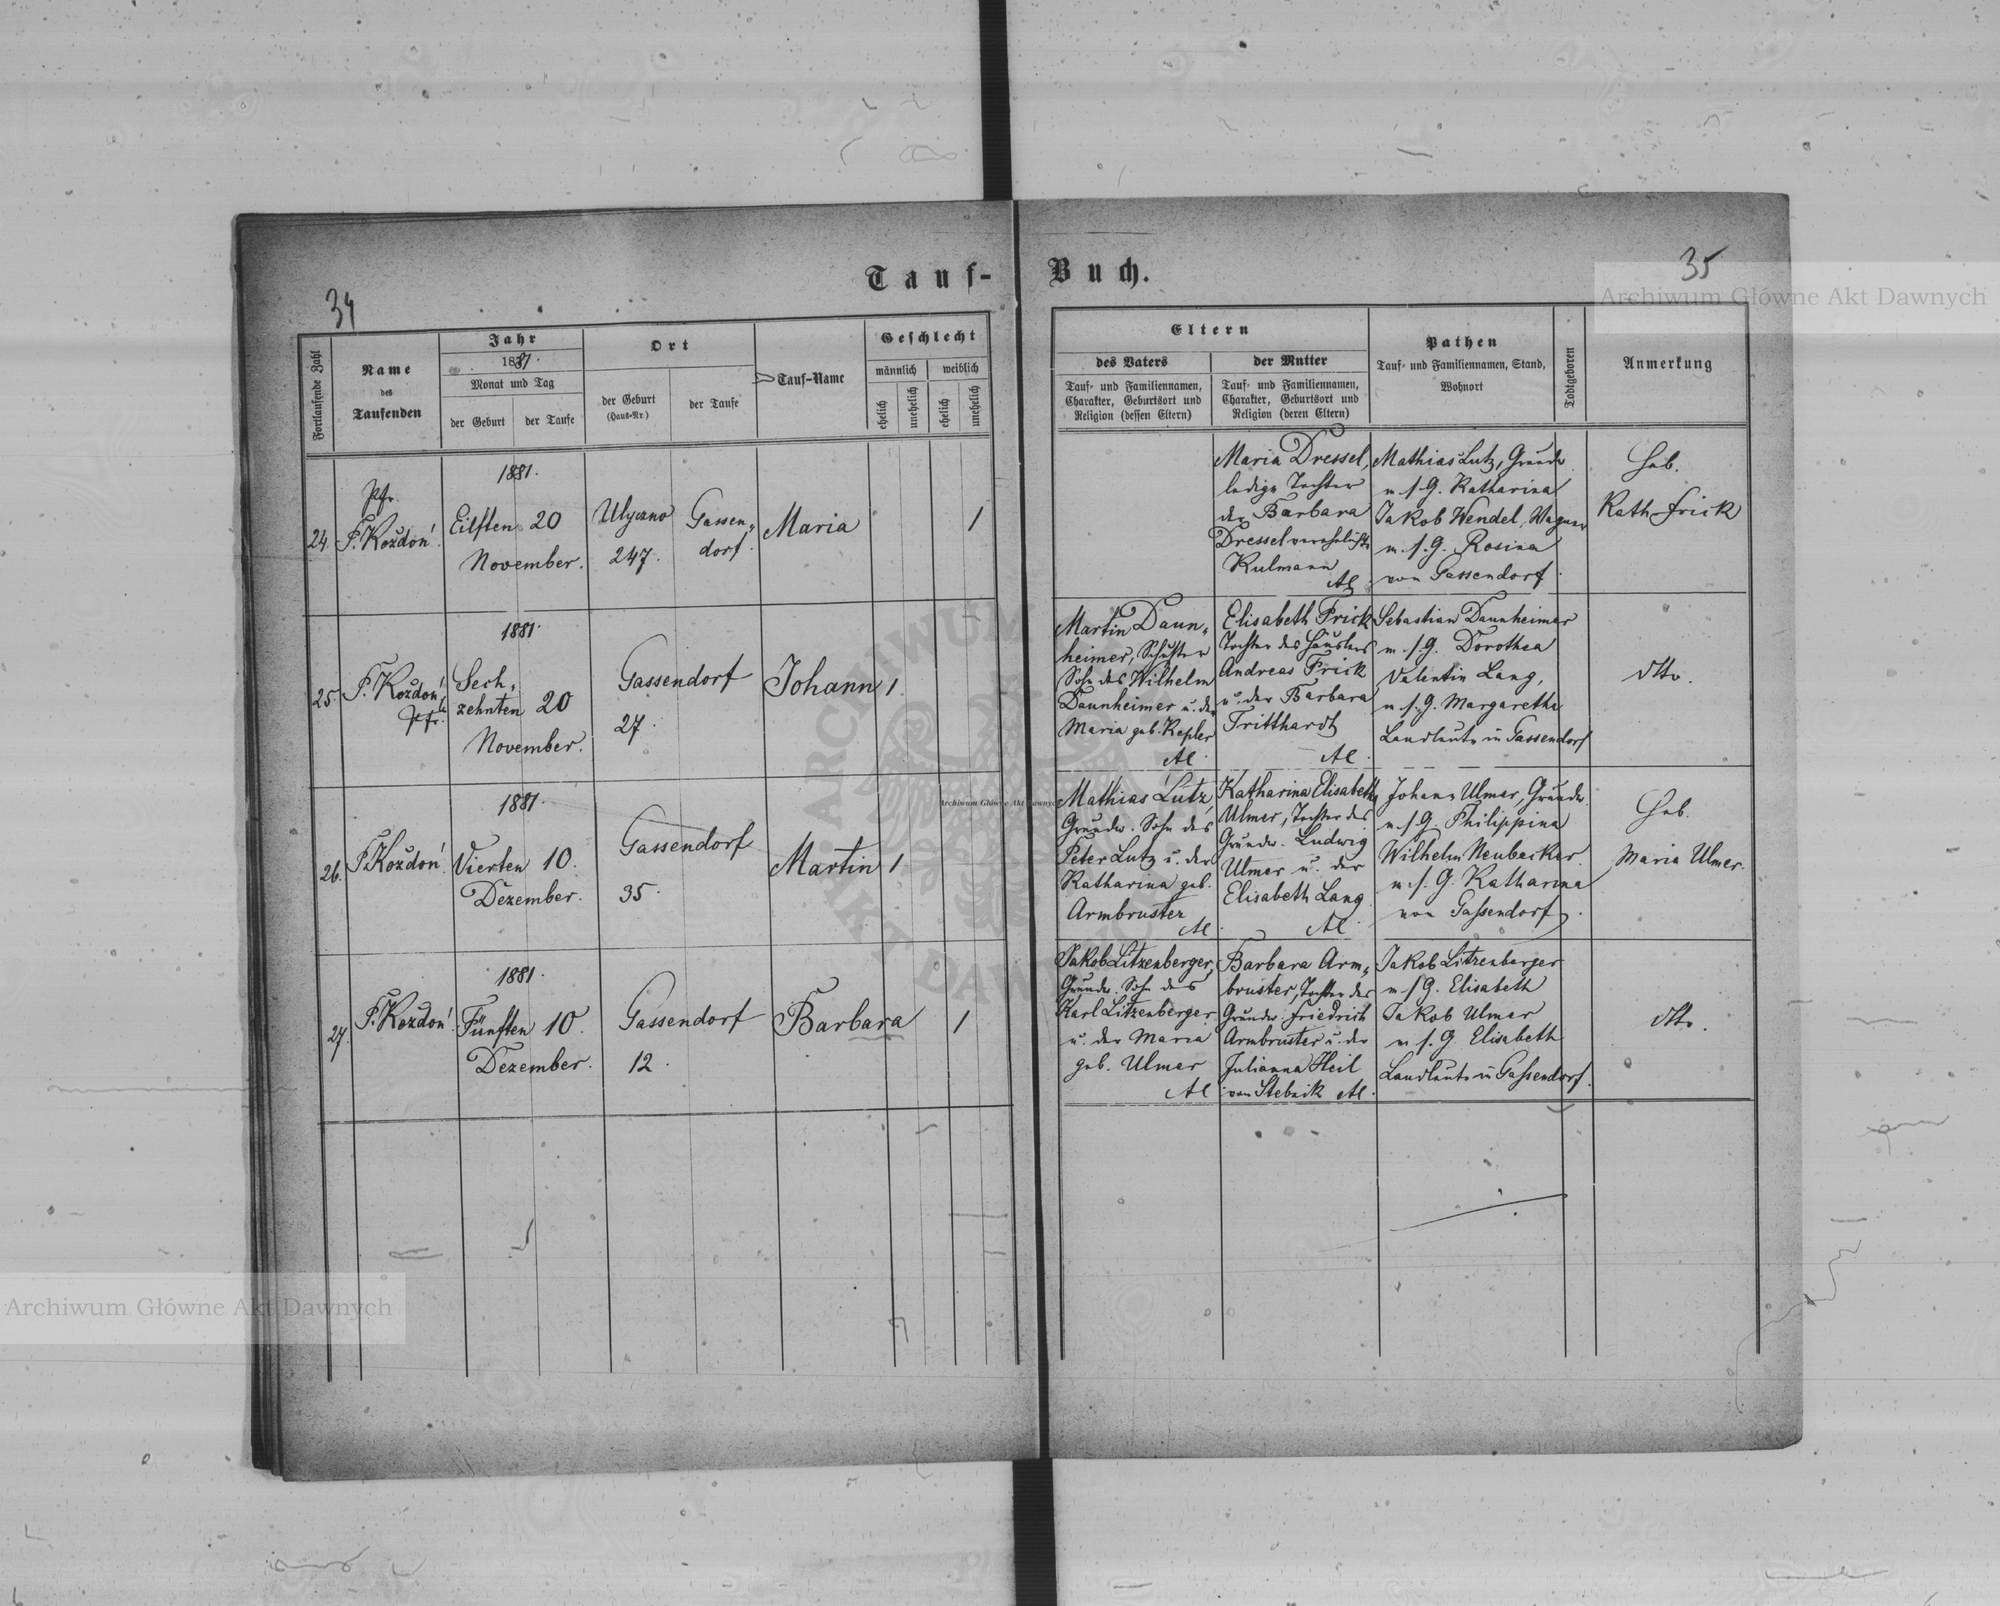 Tauf-
Buch.
34
35
Archiwum Główne Akt Dawnych
Fortlaufende Zahl
Name
des
Taufenden
Jahr
1881.
Monat und Tag
der Geburt
der Taufe
Ort
der Geburt
(Haus-Nr.)
der Taufe
Tauf-Name
Geschlecht
männlich
weiblich
ehelich
unehelich
ehelich
unehelich
Eltern
des Vaters
Tauf- und Familiennamen,
Charakter, Geburtsort und
Religion (dessen Eltern)
der Mutter
Tauf- und Familiennamen,
Charakter, Geburtsort und
Religion (deren Eltern)
Pathen
Tauf- und Familiennamen, Stand,
Wohnort
Todtgeboren
Anmerkung
24.
Pfr.
F. Kozdoń.
1881.
Eilften 20
November.
Ulyczno
247.
Gassen„
dorf.
Maria
1
Maria Dressel,
ledige Tochter
der Barbara
Dressel verehelichte
Kulmann
AC
Mathias Lutz, Grundw.
u. s. G. Katharina
Jakob Wendel, Wagner
u. s. G. Rosina
von Gassendorf.
Heb.
Kath. Frick
25.
F. Kozdoń
Pfr.
1881.
Sech„
zehnten 20
November.
Gassendorf
27.
Johann
1
Martin Daun„
heimer, Schuster
Sohn des Wilhelm
Daunheimer u. der
Maria geb. Kepler
AC.
Elisabeth Frick
Tochter des Häuslers
Andreas Frick
u. der Barbara
Tritthardt
AC.
Sebastian Daunheimer
u. s. G. Dorothea
Valentin Lang,
u. s. G. Margaretha
Landleute in Gassendorf
dtto.
26.
F. Kozdoń
1881.
Vierten 10.
Dezember.
Gassendorf
35.
Martin
1
Mathias Lutz,
Grundw. Sohn des
Peter Lutz u. der
Katharina geb.
Armbruster
AC.
Katharina Elisabeth
Ulmer, Tochter des
Grundw. Ludwig
Ulmer u. der
Elisabeth Lang
AC.
Johann Ulmer, Grundw.
u. s. G. Philippina
Wilhelm Neubecker.
u. s. G. Katharina
von Gassendorf.
Heb.
Maria Ulmer.
27.
F. Kozdoń
1881.
Fünften 10.
Dezember.
Gassendorf
12.
Barbara
1
Jakob Litzenberger,
Grundw. Sohn des
Karl Litzenberger
u. der Maria
geb. Ulmer
AC
Barbara Arm„
bruster, Tochter des
Grundw. Friedrich
Armbruster u. der
Julianna Heil
von Stebnik AC.
Jakob Litzenberger
u. s. G. Elisabeth
Jakob Ulmer
u. s. G. Elisabeth
Landleute in Gassendorf.
dtto.
Archiwum Główne Akt Dawnych
ARCHIWUM
Archiwum Główne Akt Dawnych